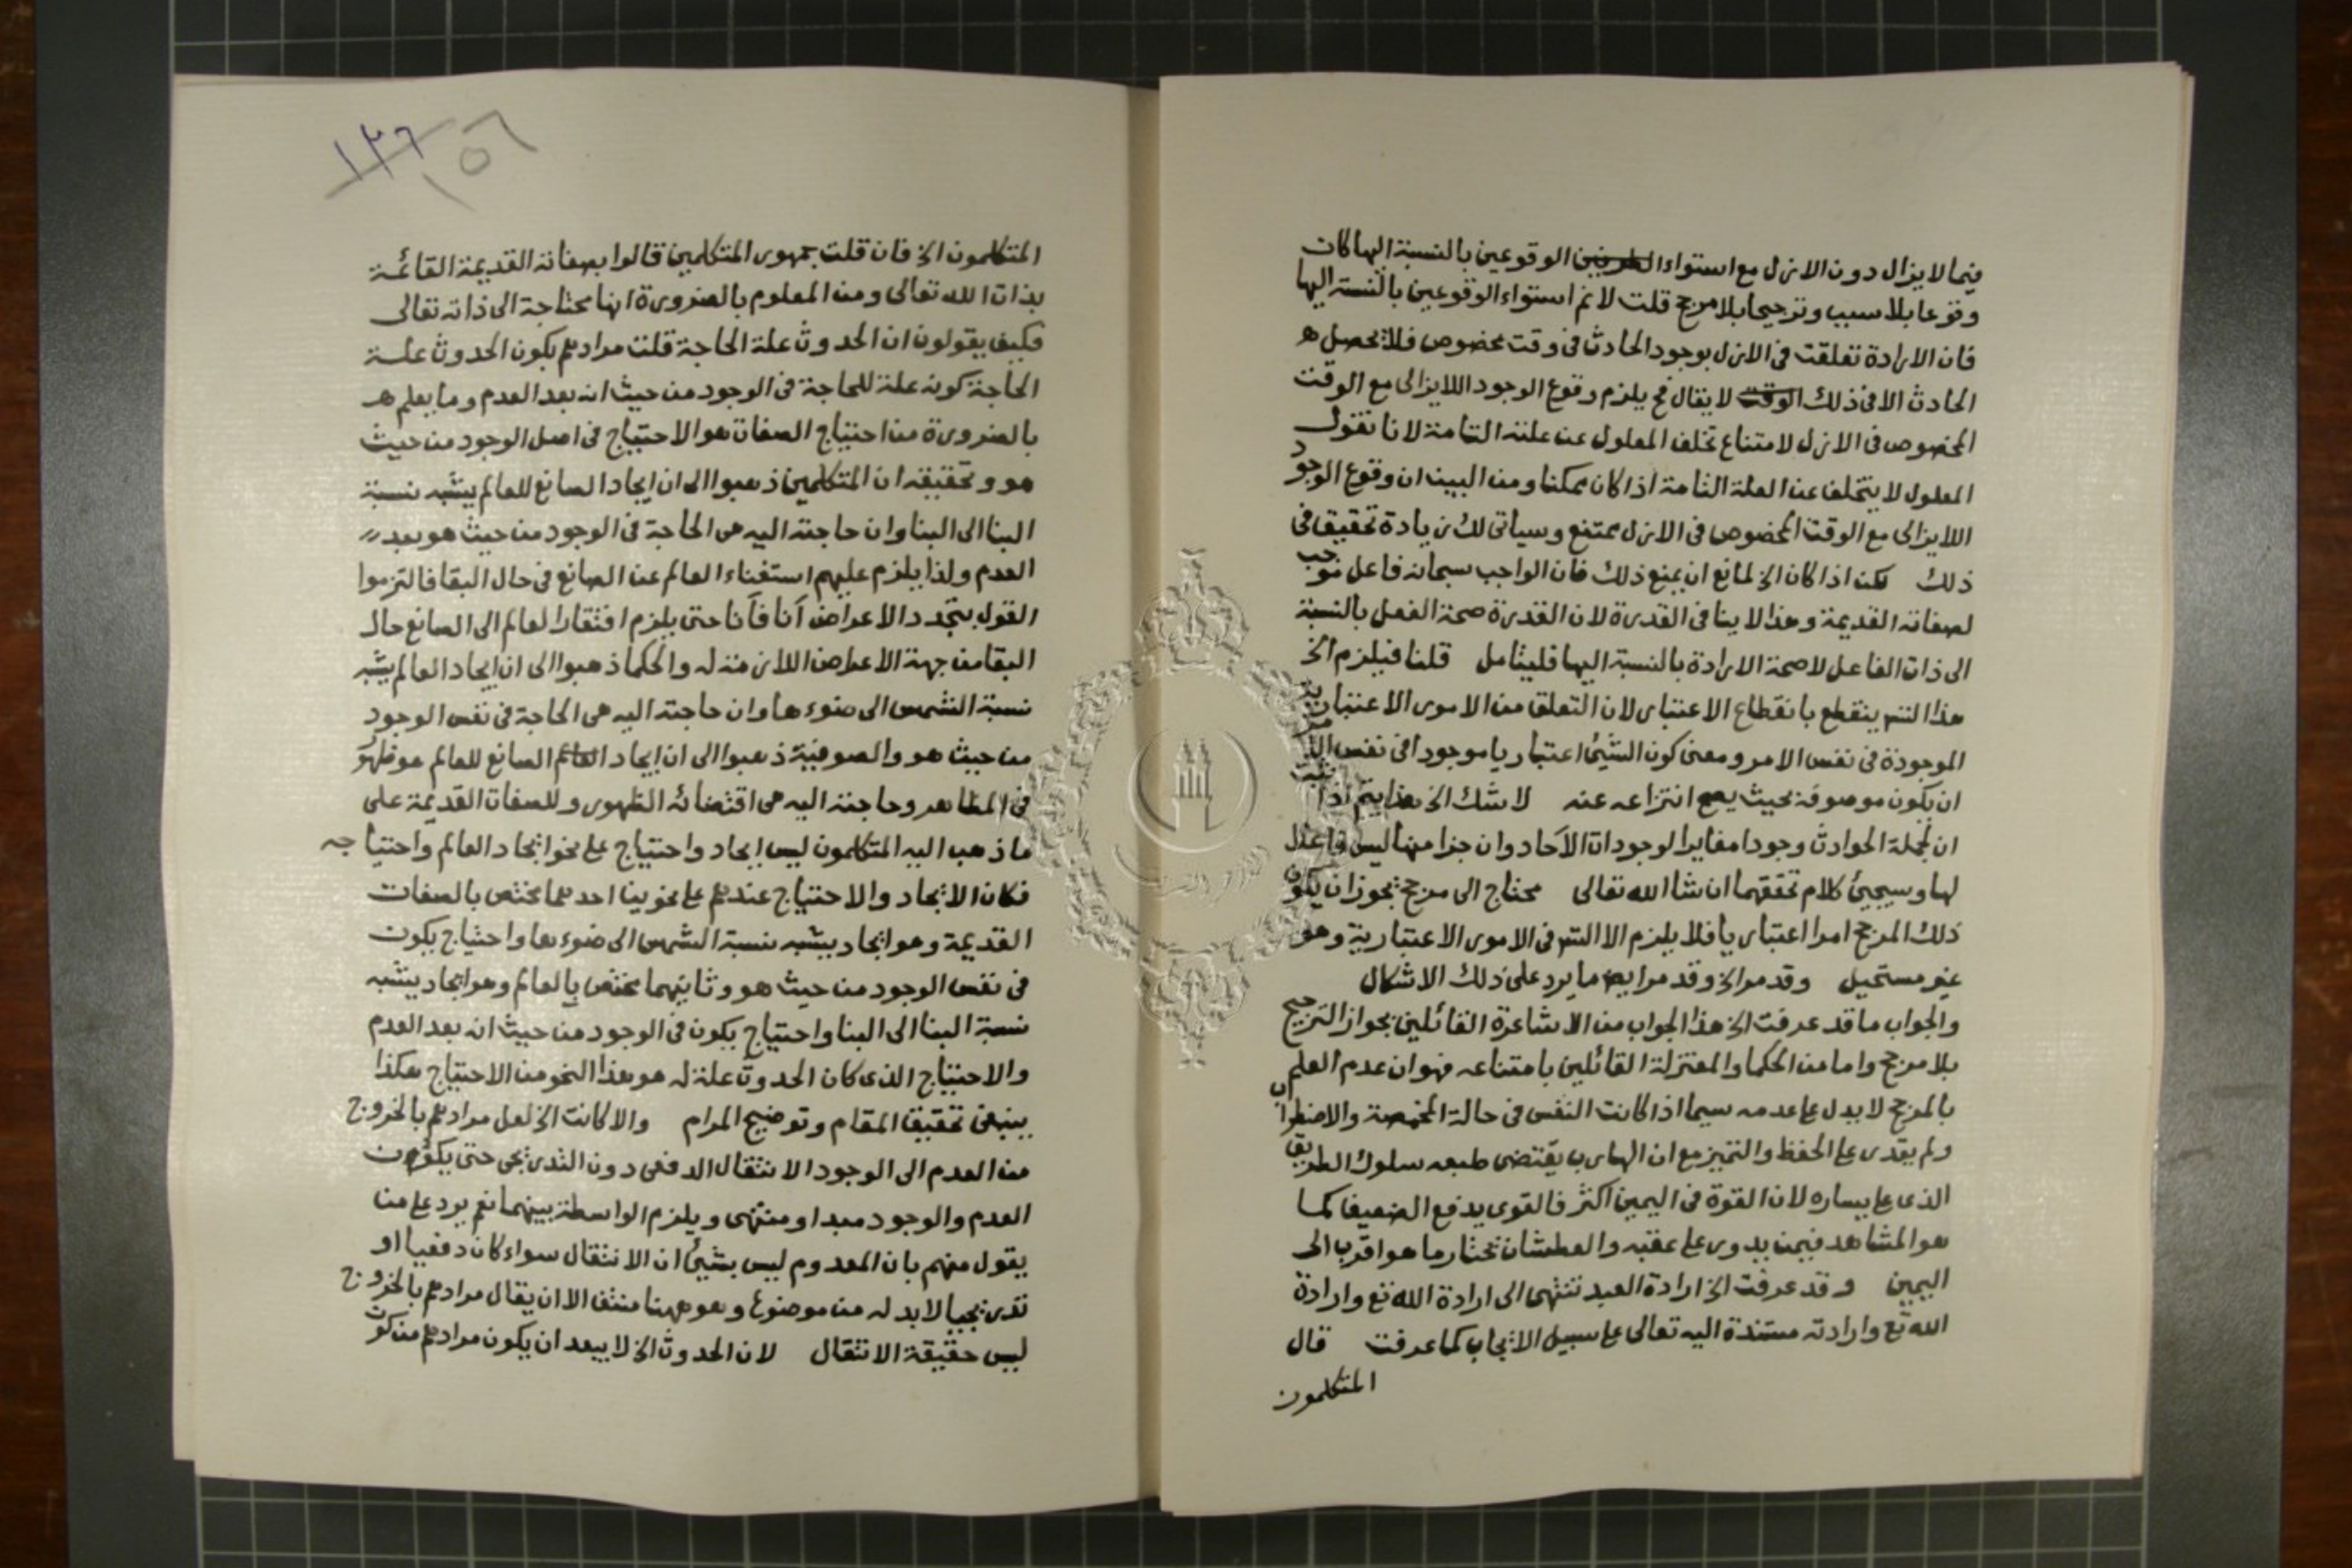 فيما لا يزال دون الازل مع استواء الوقوعين بالنسبة اليها كان
وقوعا بلا سبب وترجيحا بلا مرجح قلت لانم استواء الوقوعين بالنسبة اليها
فان الارادة تعلقت في الازل بوجود الحادث في وقت مخصوص فلا يحصل
الحادث الا في ذلك الوقت لا يقال فح يلزم وقوع الوجود اللايزالى مع الوقت
المخصوص في الازل لامتناع تخلف المعلول عن علته التامة لانا نقول
المعلول لا يتخلف عن العلة التامة اذا كان ممكنا ومن البين ان وقوع الوجود
اللايزالى مع الوقت المخصوص في الازل ممتنع وسياتى لك زيادة تحقيق في
ذلك لكن اذا كان الخ لمانع ان يمنع ذلك فان الواجب سبحانه فاعل موجب
لصفاته القديمة وهذا لا ينافى القدرة لان القدرة صحة الفعل بالنسبة
الى ذات الفاعل لا صحة الارادة بالنسبة اليها فليتامل قلنا فيلزم الخ
هذا التس ينقطع بانقطاع الاعتبار لان التعلق من الامور الاعتبارية
الموجودة في نفس الامر ومعنى كون الشيئ اعتباريا موجودا في نفس الامر
ان يكون موصوفه بحيث يصح انتزاعه عنه لا شك الخ هذا يتم اذا
ان لجملة الحوادث وجودا مغايرا لوجودات الآحاد وان جزا منها ليس فاعل
لها وسيجيئ كلام تحققهما ان شا الله تعالى محتاج الى مرجح يجوز ان يكون
ذلك المرجح امرا اعتباريا فلا يلزم الا التس في الامور الاعتبارية وهو
غير مستحيل وقد مر الخ وقد مر ايض ما يرد على ذلك الاشكال
والجواب ما قد عرفت الخ هذا الجواب من الاشاعرة القائلين بجواز الترجيح
بلا مرجح واما من الحكما والمعتزلة القائلين بامتناعه فهو ان عدم العلم
بالمرجح لا يدل على عدمه سيما اذا كانت النفس في حالة المخمصة والاضطراب
ولم يقدر على الحفظ والتميز مع ان الهارب يقتضى طبعه سلوك الطريق
الذى على يساره لان القوة في اليمين اكثر فالقوى يدفع الضعيف كما
هو المشاهد فيمن يدور على عقبه والعطشان يختار ما هو اقرب الى
اليمين وقد عرفت الخ ارادة العبد تنتهى الى ارادة الله تع وارادة
الله تع وارادته مستندة اليه تعالى على سبيل الايجاب كما عرفت قال
المتكلمون
١٣٦
١٥٦
المتكلمون الخ فان قلت جمهور المتكلمين قالوا بصفاته القديمة القائمة
بذات الله تعالى ومن المعلوم بالضرورة انها محتاجة الى ذاته تعالى
فكيف يقولون ان الحدوث علة الحاجة قلت مرادهم بكون الحدوث علة
الحاجة كونه علة للحاجة في الوجود من حيث انه بعد العدم وما يعلم
بالضرورة من احتياج الصفات هو الاحتياج في اصل الوجود من حيث
هو وتحقيقه ان المتكلمين ذهبوا الى ان ايجاد الصانع للعالم يشبه نسبة
البنا الى البنا وان حاجته اليه هى الحاجة في الوجود من حيث هو بعد
العدم ولذا يلزم عليهم استغناء العالم عن الصانع في حال البقا فالتزموا
القول بتجدد الاعراض آنا فآنا حتى يلزم افتقار العالم الى الصانع حال
البقا من جهة الاعراض اللازمة له والحكما ذهبوا الى ان ايجاد العالم يشبه
نسبة الشمس الى ضوءها وان حاجته اليه هى الحاجة في نفس الوجود
من حيث هو والصوفية ذهبوا الى ان ايجاد الصانع للعالم هو ظهوره
في المظاهر وحاجته اليه هى اقتضائه الظهور وللصفات القديمة على
ما ذهب اليه المتكلمون ليس ايجاد واحتياج على نحو ايجاد العالم واحتياجه
فكان الايجاد والاحتياج عندهم على نحوين احدهما مختص بالصفات
القديمة وهو ايجاد يشبه نسبة الشمس الى ضوءها واحتياج يكون
في نفس الوجود من حيث هو وثانيهما مختص بالعالم وهو ايجاد يشبه
نسبة البنا الى البنا واحتياج يكون في الوجود من حيث انه بعد العدم
والاحتياج الذى كان الحدوث علة له هو هذا النحو من الاحتياج هكذا
ينبغى تحقيق المقام وتوضيح المرام والا كانت الخ لعل مرادهم بالخروج
من العدم الى الوجود الانتقال الدفعى دون التدريجى حتى يكون
العدم والوجود مبدا ومنتهى ويلزم الواسطة بينهما نعم يرد على من
يقول منهم بان المعدوم ليس بشيئ ان الانتقال سواء كان دفعيا او
تدريجيا لا بد له من موضوع وهو ههنا منتف الا ان يقال مرادهم بالخروج
ليس حقيقة الانتقال لان الحدوث الخ لا يبعد ان يكون مرادهم من كون